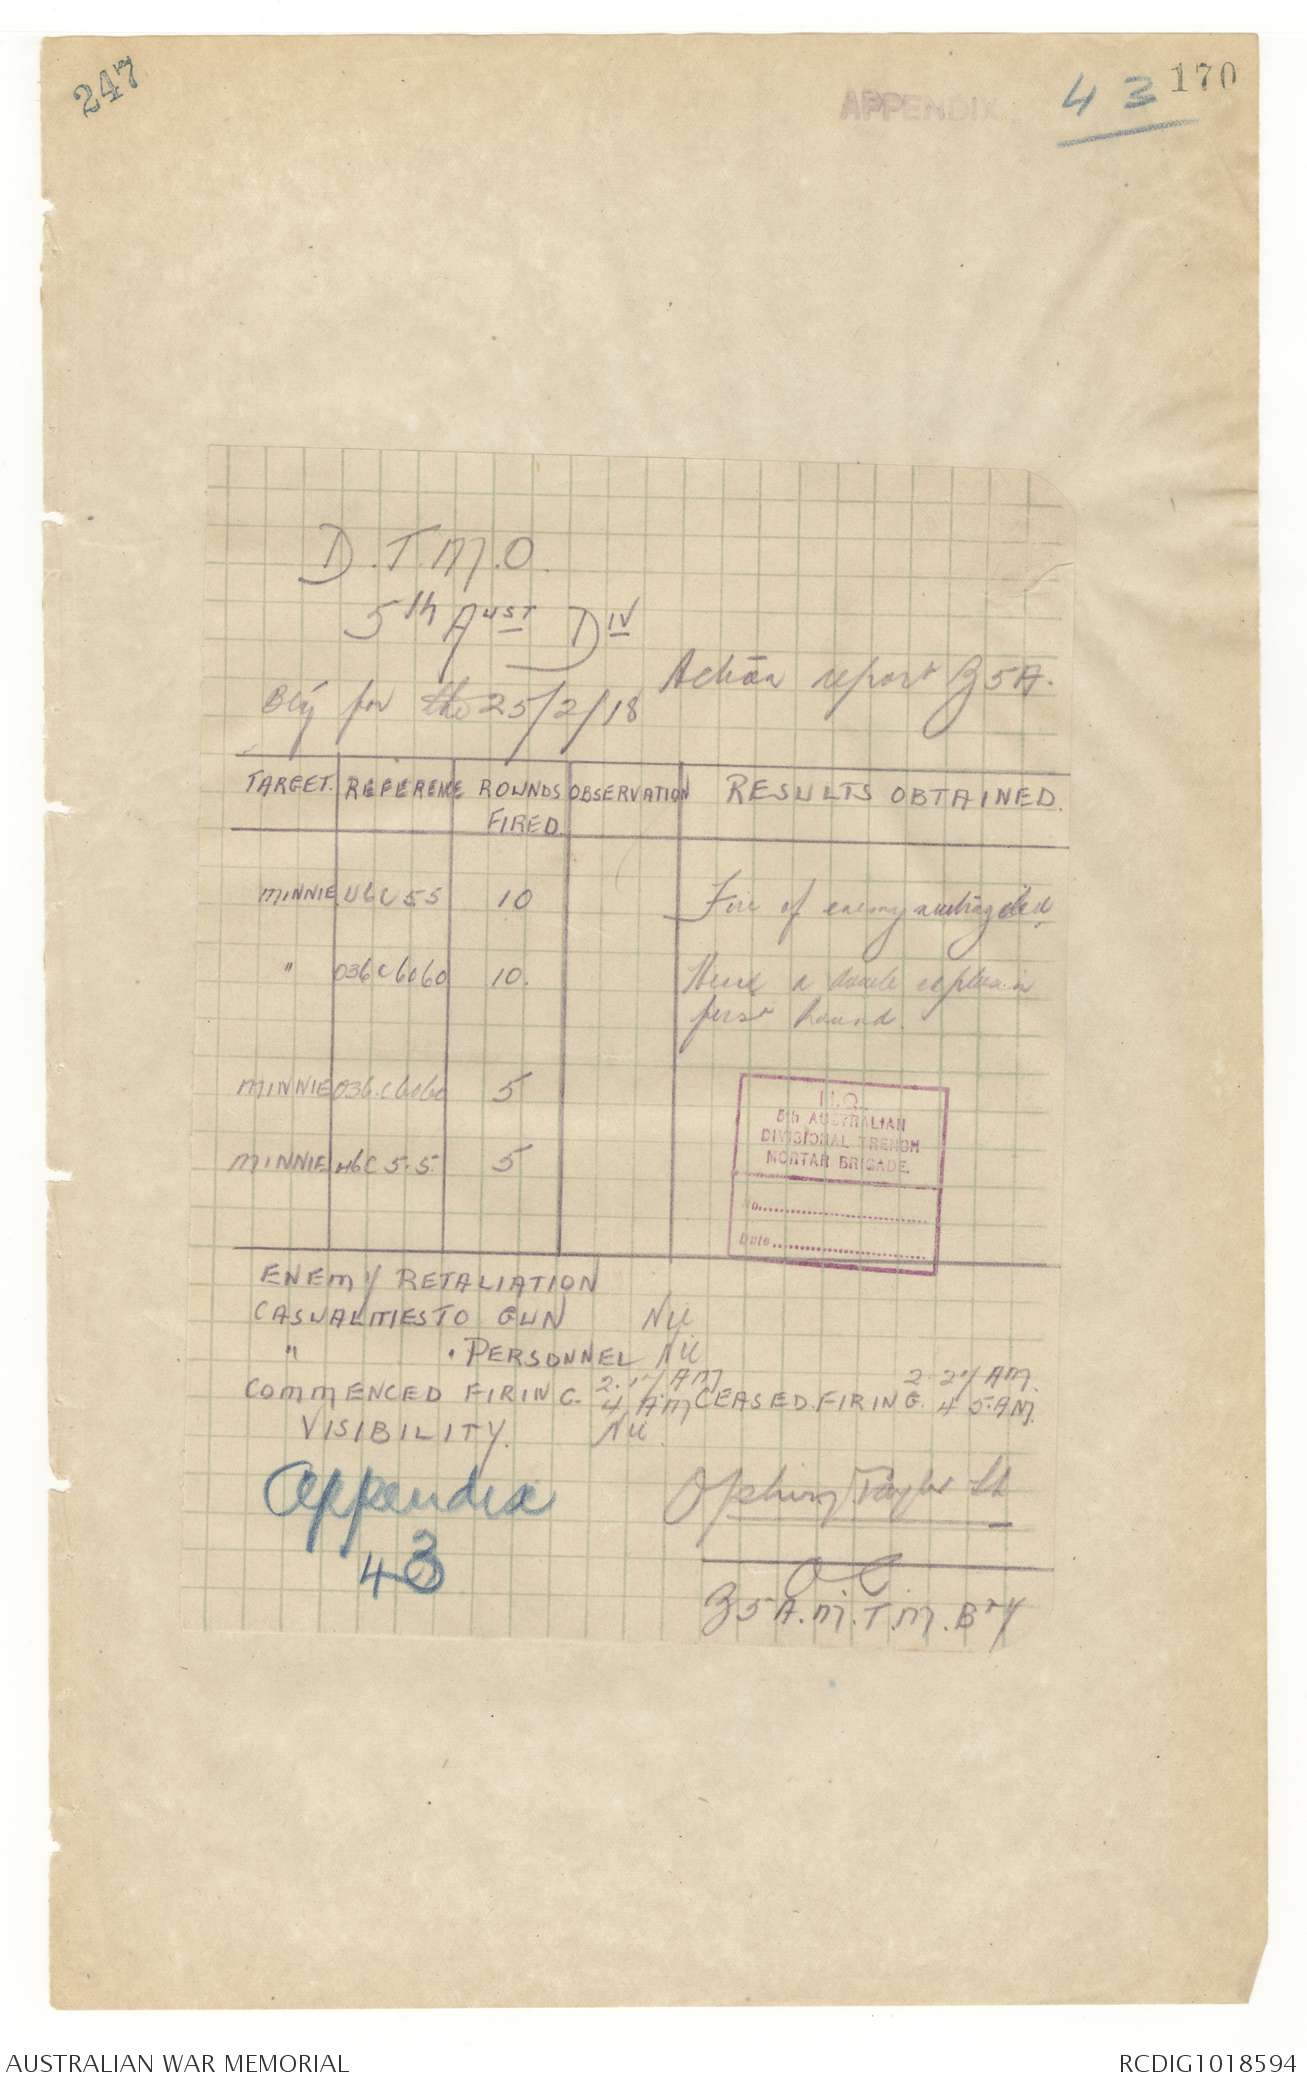 247
APPENDIX
43
170
D.T.M.O.
5th Aust Div
Action report Z5A.
Bty for the 25/2/18
TARGET. REFERENCE ROUNDS FIRED OBSERVATION RESULTS OBTAINED.
MINNIE U6C 55 10 Fire of enemy
" O36C6060 10. a double explosion
first round.
MINNIE O36.C6060 5
MINNIE U6C 5.5. 5
H.Q.
5th AUSTRALIAN
DIVISIONAL TRENCH
MORTAR BRIGADE.
No.
Date
ENEMY RETALIATION
CASUALTIES TO GUN Nil
" " PERSONNEL Nil
COMMENCED FIRING. AM CEASED FIRING. AM.
4 AM 4 5. AM.
VISIBILITY. Nil.
Appendix
43
Taylor Lt
OC
Z5A.M.T.M. Bty
AUSTRALIAN WAR MEMORIAL
RCDIG1018594